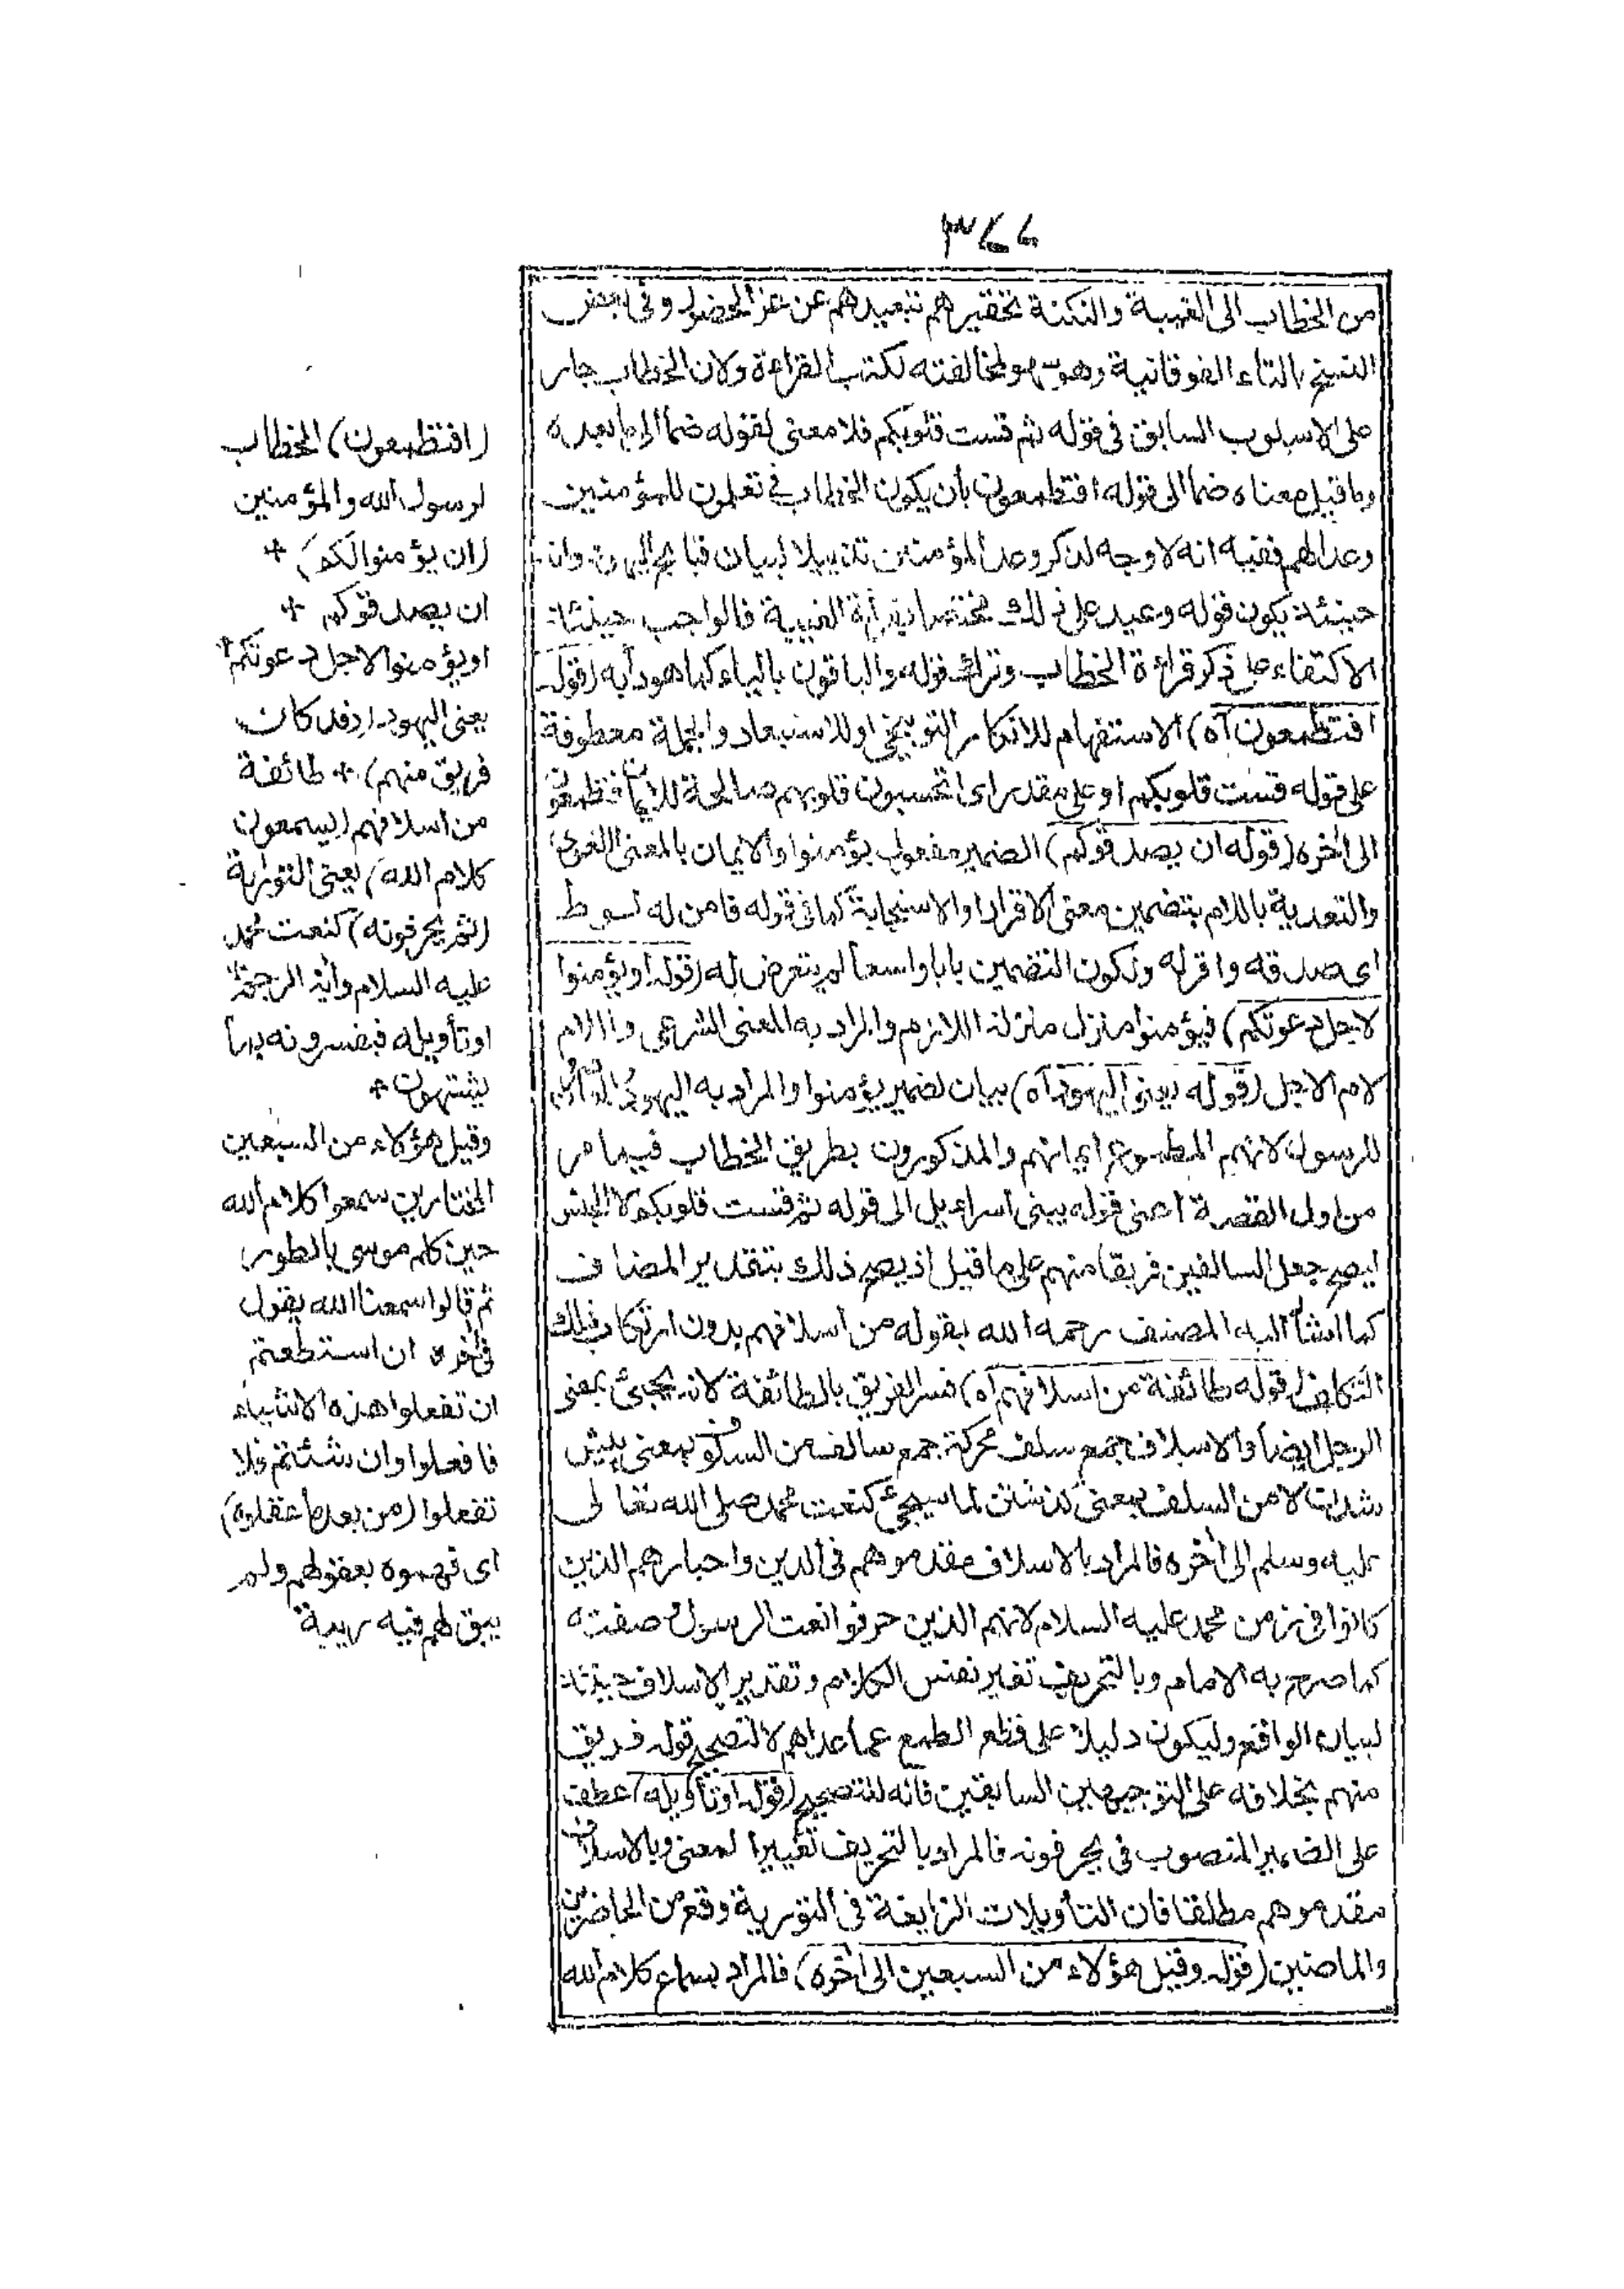 ٣٧٧
من الخطاب الى الغيبة والنكتة تحقيرهم بتبعيدهم عن عز الحضور وفى بعض
النسخ بالتاء الفوقانية وهو سهو لمخالفته لكتب القراءة ولان الخطاب جار
على الاسلوب السابق فى قوله ثم قست قلوبكم فلا معنى لقوله ضما الى ما بعده
وما قيل معناه ضما الى قوله افتطمعون بأن يكون الخطاب فى تعملون للمؤمنين
وعدا لهم ففيه انه لا وجه لذكر وعد المؤمنين تذييلا لبيان قبايح اليهود وان
حينئذ يكون قوله وعيد على ذلك مختصا بقراءة الغيبة فالواجب حينئذ
الاكتفاء على ذكر قراءة الخطاب وترك قوله والباقون بالياء كما هو دأبه (قوله
افتطمعون آه) الاستفهام للانكار التوبيخى او للاستبعاد والجملة معطوفة
على قوله قست قلوبكم او على مقدر اى اتحسبون قلوبهم صالحة للايمان فتطمعون
الى آخره (قوله ان يصدقوكم) الضمير مفعول يؤمنوا والايمان بالمعنى اللغوى
والتعدية باللام بتضمين معنى الاقرار او الاستجابة كما فى قوله فامن له لوط
اى صدقه واقر له ولكون التضمين بابا واسعا لم يتعرض له (قوله او يؤمنوا
لاجل دعوتكم) فيؤمنوا منزل منزلة اللازم والمراد به المعنى الشرعى واللام
لام الاجل (قوله يعنى اليهود آه) بيان لضمير يؤمنوا والمراد به اليهود
للرسول لانهم المطموع ايمانهم والمذكورون بطريق الخطاب فيما مر
من اول القصة اعنى قوله يبنى اسراءيل الى قوله ثم قست قلوبكم لا الجنس
ليصح جعل السالفين فريقا منهم على ما قيل اذ يصح ذلك بتقدير المضاف
كما اشار اليه المصنف رحمه الله بقوله من اسلافهم بدون ارتكاب ذلك
التكلف (قوله طائفة من اسلافهم آه) فسر الفريق بالطائفة لانه يجيئ بمعنى
الرجل ايضا والاسلاف جمع سلف محركة جمع سالف من السلوف بمعنى پيش
شدن لا من السلف بمعنى گذشتن لما سيجئ كنعت محمد صلى الله تعالى
عليه وسلم الى آخره فالمراد بالاسلاف مقدموهم فى الدين واحبارهم الذين
كانوا فى زمن محمد عليه السلام لانهم الذين حرفوا نعت الرسول وصفته
كما صرح به الامام وبالتحريف تغير نفس الكلام وتقدير الاسلاف حينئذ
لبيان الواقع وليكون دليلا على قطع الطمع عما عداهم لا لتصحيح قوله فريق
منهم بخلافه على التوجيهين السابقين فانه للتصحيح (قوله او تأويله) عطف
على الضمير المنصوب فى يحرفونه فالمراد بالتحريف تغيير المعنى وبالاسلاف
مقدموهم مطلقا فان التأويلات الزايغة فى التورية وقع من الحاضرين
والماضين (قوله وقيل هؤلاء من السبعين الى آخره) فالمراد بسماع كلام الله
(افتطمعون) الخطاب
لرسول الله والمؤمنين
(ان يؤمنوا لكم) +
ان يصدقوكم +
او يؤمنوا لاجل دعوتكم
يعنى اليهود (وقد كان
فريق منهم) + طائفة
من اسلافهم (يسمعون
كلام الله) يعنى التورية
(ثم يحرفونه) كنعت محمد
عليه السلام وآية الرجم
او تأويله فيفسرونه بما
يشتهون +
وقيل هؤلاء من السبعين
المختارين سمعوا كلام الله
حين كلم موسى بالطور
ثم قالوا سمعنا الله يقول
فى آخره ان استطعتم
ان تفعلوا هذه الاشياء
فافعلوا وان شئتم فلا
تفعلوا (من بعد ما عقلوه)
اى فهموه بعقولهم ولم
يبق لهم فيه ريبة